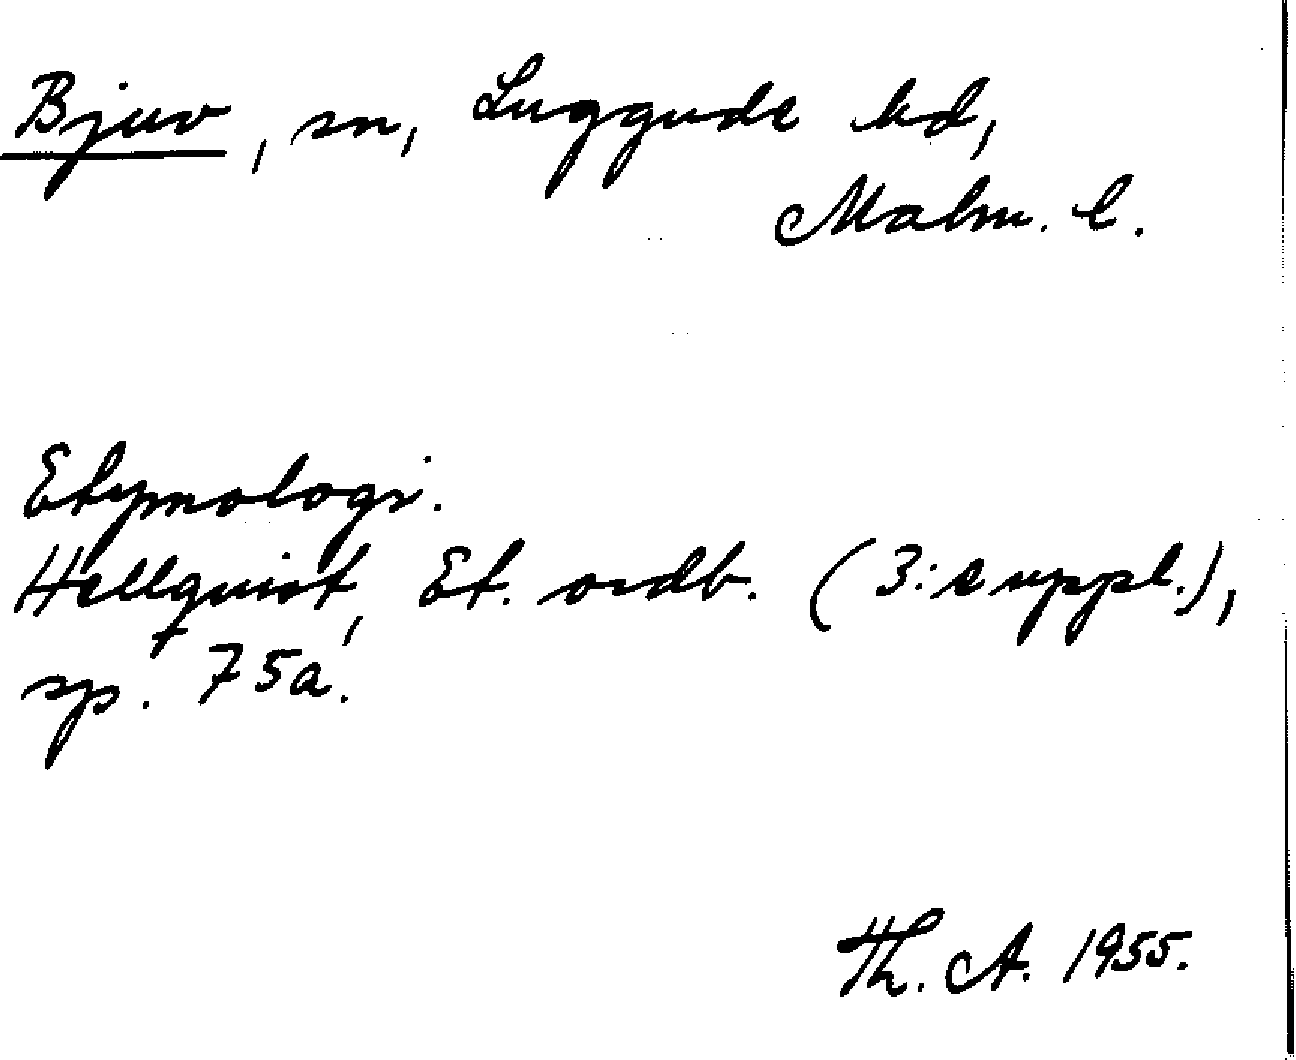 Bjuv, sn, Luggude hd,
Malm. l.
Etymologi.
Hellquist, Et. ordb. (3:e uppl.),
sp. 75a.
Th. A. 1955.